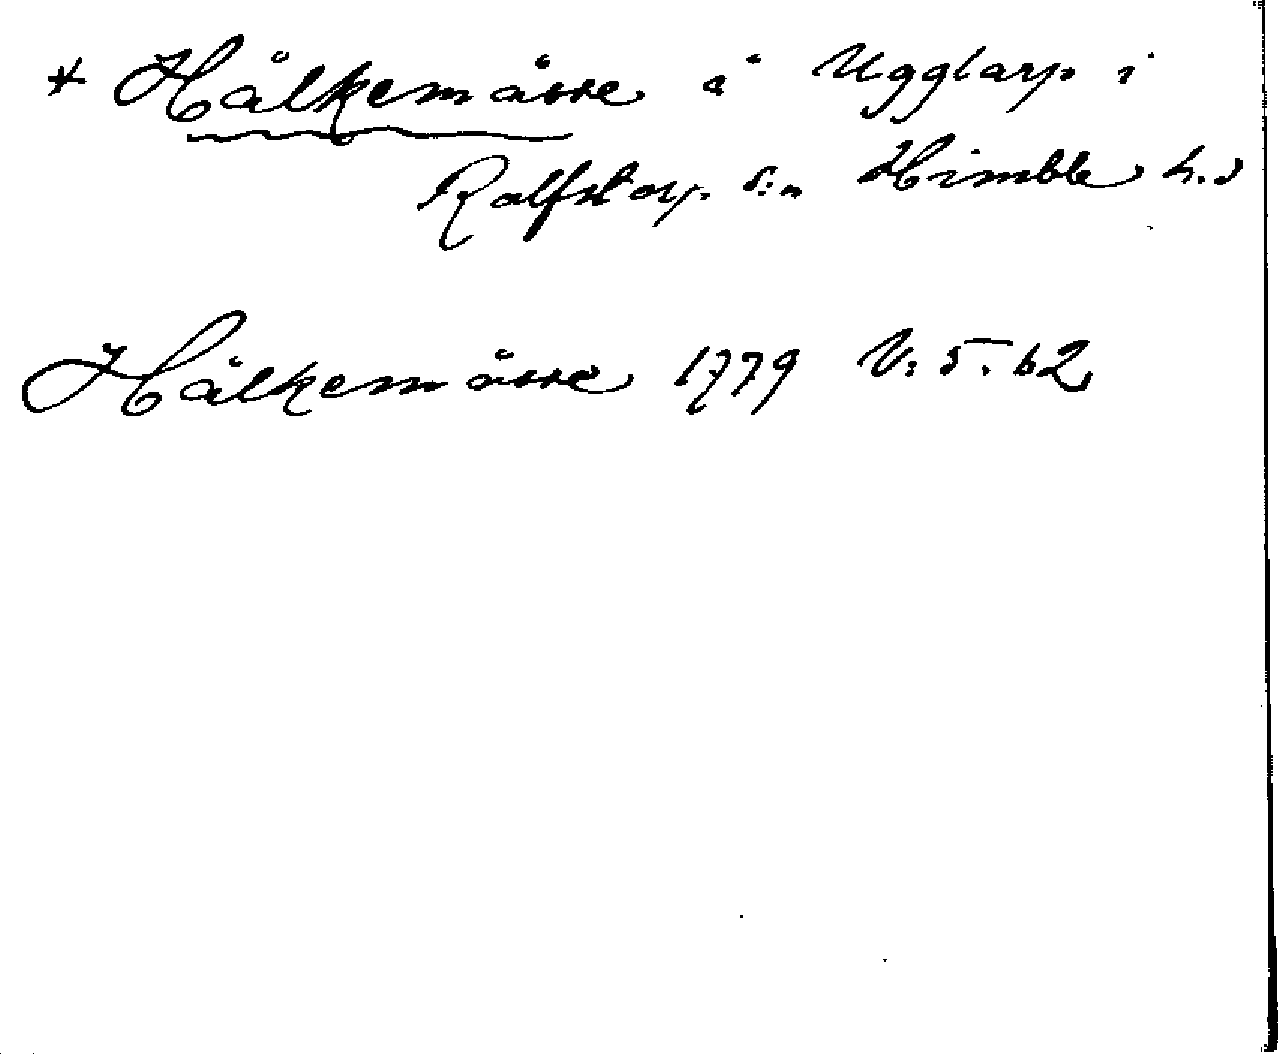 + Hålkemåsse å Ugglarp i
Rolfstorp s:n Himble h.d
Hålkemåsse 1779 V: 5. 62